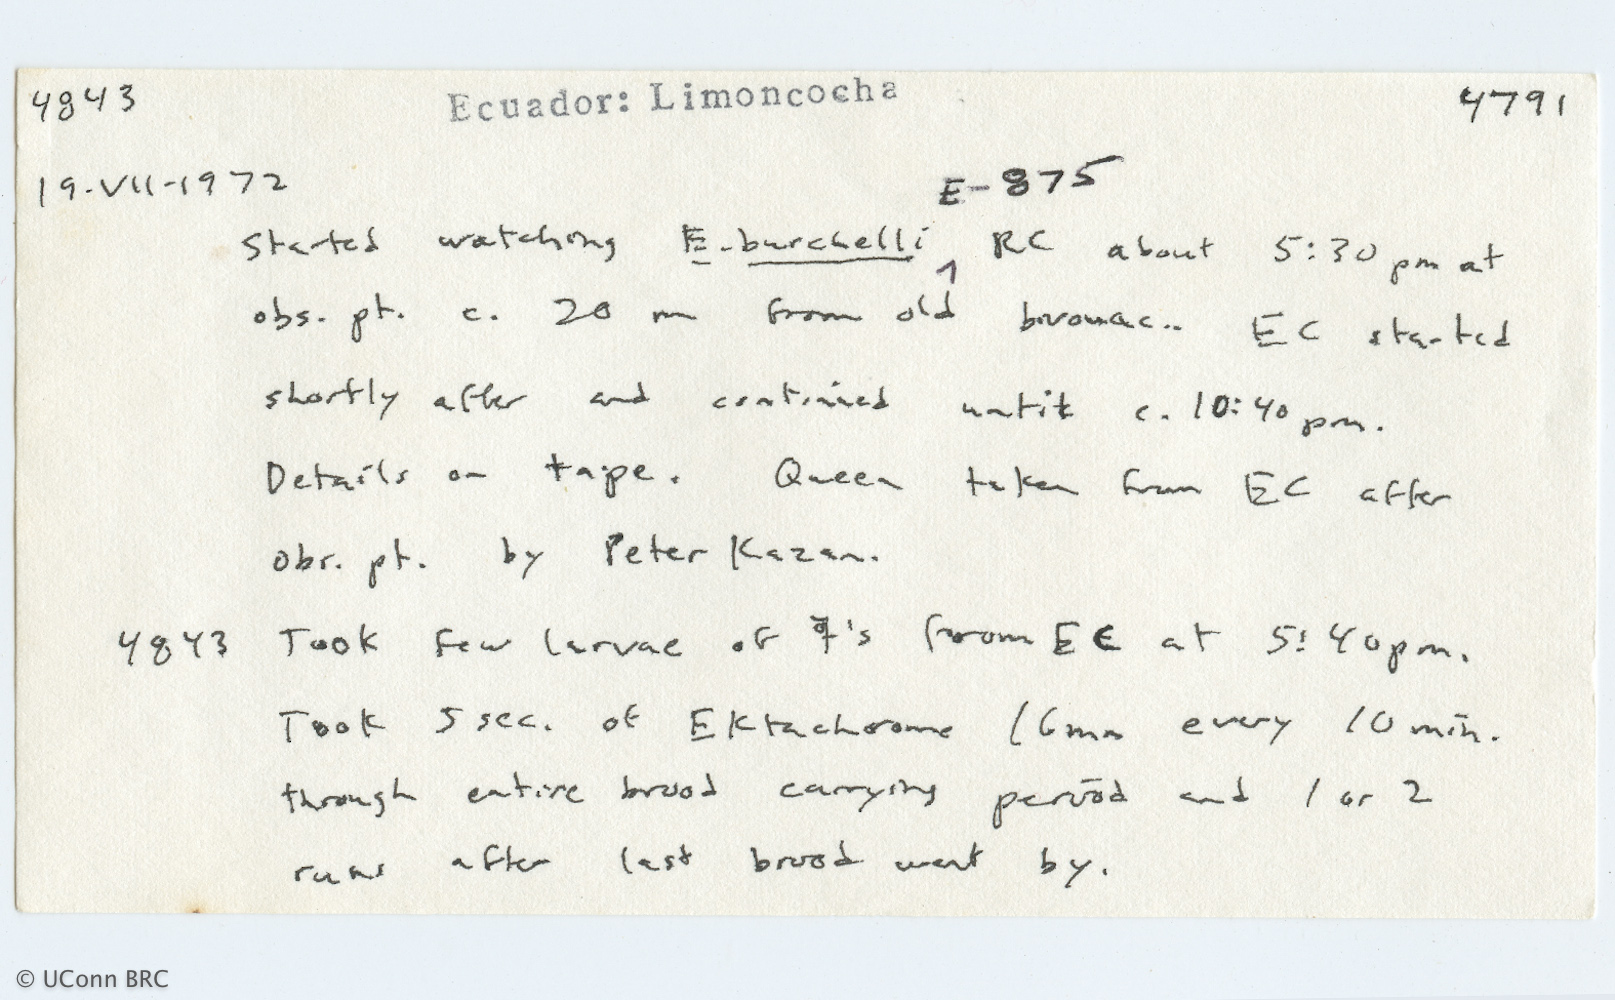 4843 Ecuador: Limoncocha 4791
19-VII-1972 E-875
Started watching E. burchelli ^ RC about 5:30 pm at
obs. pt. c. 20 m from old bivouac. EC started
shortly after and continued until c. 10:40 pm.
Details on tape. Queen taken from EC after
obs. pt. by Peter Kazan.
4843 Took few larvae of 's from EC at 5:40 pm.
Took 5 sec. of Ektachrome 16mm every 10 min.
through entire brood carrying period and 1 or 2
runs after last brood went by.
© UConn BRC